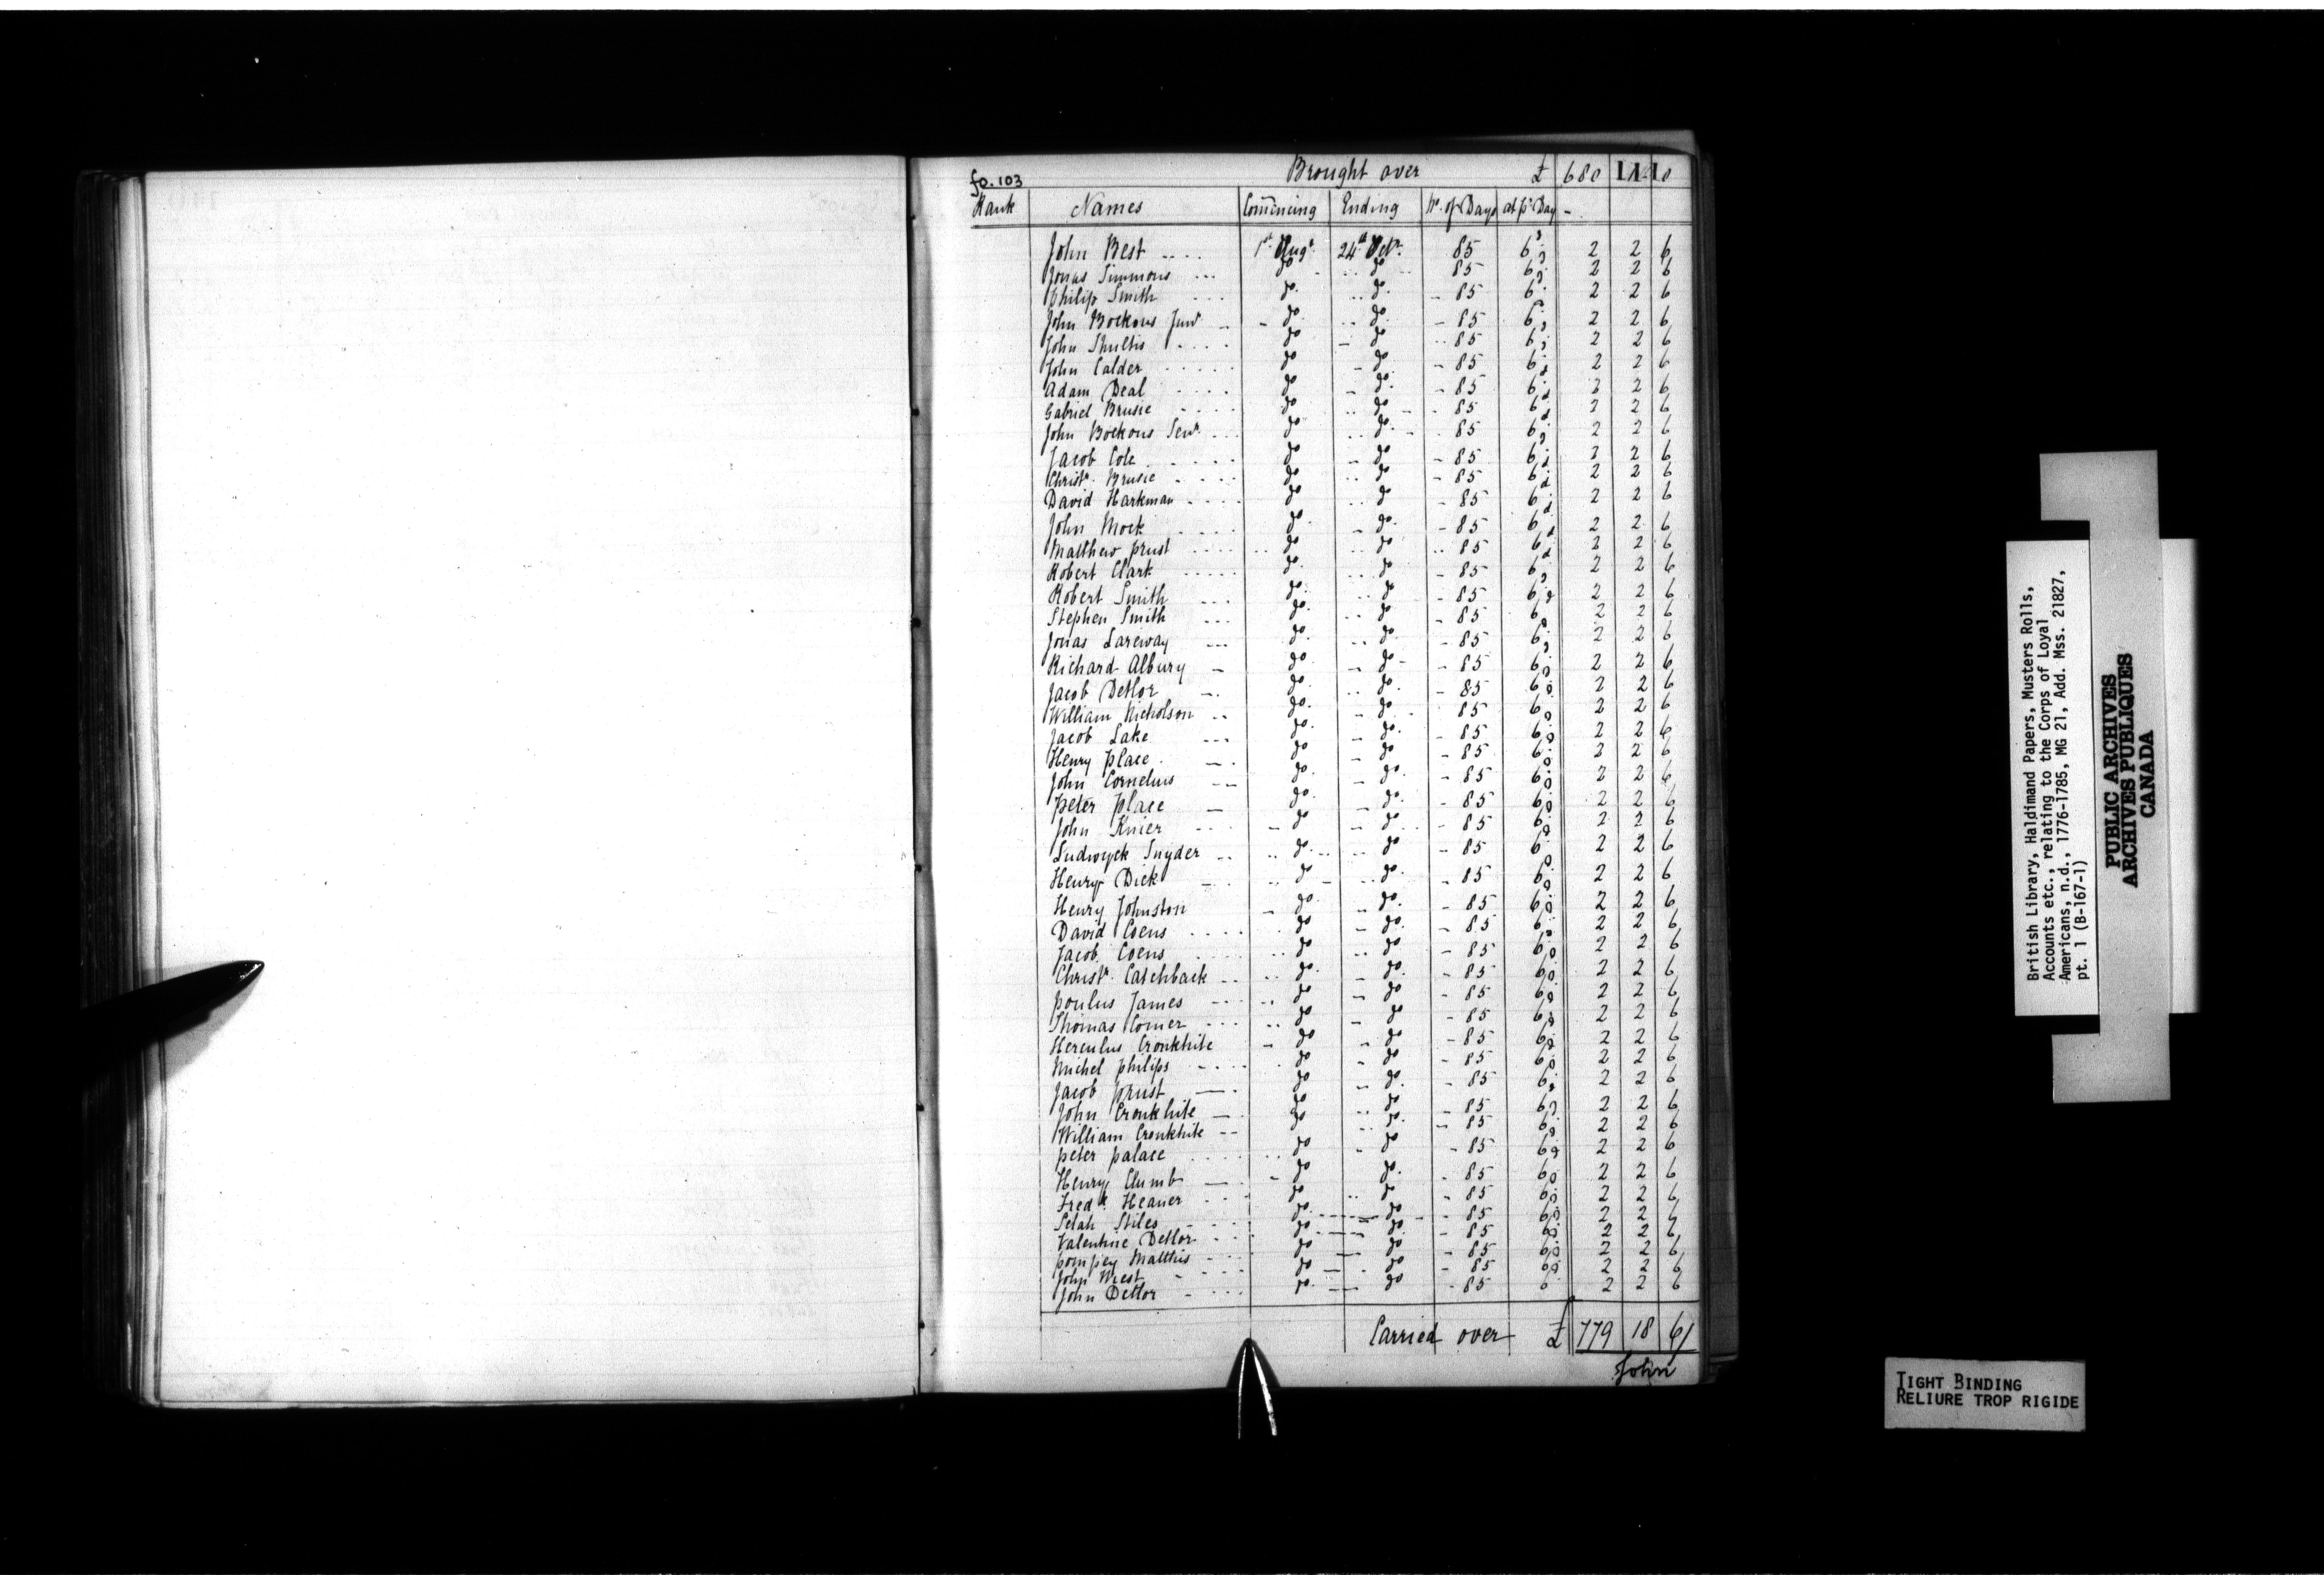 fo. 103 Brought over £ 680
Rank Names Commencing Ending No. of Days at pr Day
John Best 1st Augt 24th Octr 85 6 2 2 6
Jonas Simmons do do 85 6 2 2 6
Philip Smith do do 85 6 2 2 6
John Bockous Junr do do 85 6 2 2 6
John Shultis do do 85 6 2 2 6
John Calder do do 85 6 2 2 6
Adam Deal do do 85 6 2 2 6
Gabriel Brusie do do 85 6 2 2 6
John Bockous Senr do do 85 6 2 2 6
Jacob Cole do do 85 6 2 2 6
Christr. Brusie do do 85 6 2 2 6
David Harkman do do 85 6 2 2 6
John Mock do do 85 6 2 2 6
Matthew prust do do 85 6 2 2 6
Robert Clark do do 85 6 2 2 6
Robert Smith do do 85 6 2 2 6
Stephen Smith do do 85 6 2 2 6
Jonas Lareway do do 85 6 2 2 6
Richard Albury do do 85 6 2 2 6
Jacob Detlor do do 85 6 2 2 6
William Nicholson do do 85 6 2 2 6
Jacob Lake do do 85 6 2 2 6
Henry place do do 85 6 2 2 6
John Cornelius do do 85 6 2 2 6
peter place do do 85 6 2 2 6
John Knier do do 85 6 2 2 6
Ludwyck Snyder do do 85 6 2 2 6
Henry Dick do do 85 6 2 2 6
Henry Johnston do do 85 6 2 2 6
David Coens do do 85 6 2 2 6
Jacob Coens do do 85 6 2 2 6
Christr. Catchback do do 85 6 2 2 6
poulus James do do 85 6 2 2 6
Thomas Comer do do 85 6 2 2 6
Herculus Cronkhite do do 85 6 2 2 6
Michel philips do do 85 6 2 2 6
Jacob prust do do 85 6 2 2 6
John Cronkhite do do 85 6 2 2 6
William Cronkhite do do 85 6 2 2 6
peter palace do do 85 6 2 2 6
Henry Clumb do do 85 6 2 2 6
Fredk. Heaner do do 85 6 2 2 6
Selah Stiles do do 85 6 2 2 6
Valentine Detlor do do 85 6 2 2 6
pompey Matthis do do 85 6 2 2 6
John West do do 85 6 2 2 6
John Detlor do do 85 6 2 2 6
Carried over £ 779 18 6
John
British Library, Haldimand Papers, Musters Rolls,
Accounts etc., relating to the Corps of Loyal
Americans, n.d., 1776-1785, MG 21, Add. Mss. 21827,
pt. 1 (B-167-1)
PUBLIC ARCHIVES
ARCHIVES PUBLIQUES
CANADA
TIGHT BINDING
RELIURE TROP RIGIDE